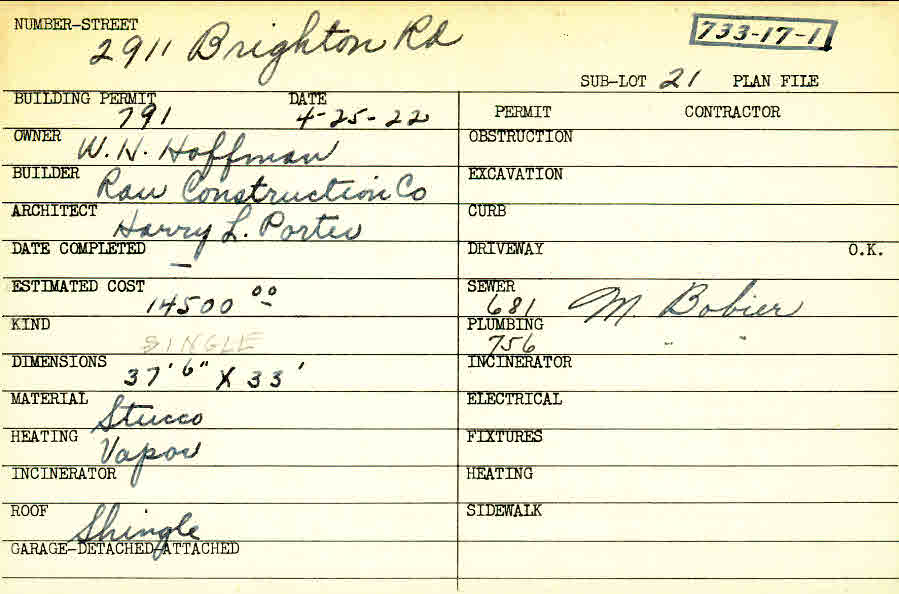 NUMBER-STREET
2911 Brighton Rd
733-17-1
SUB-LOT 21 PLAN FILE
BUILDING PERMIT 791 DATE 4-25-22
OWNER W. H. Hoffman
BUILDER Rau Construction Co
ARCHITECT Harry L. Porter
DATE COMPLETED —
ESTIMATED COST 14500 00
KIND SINGLE
DIMENSIONS 37' 6" X 33'
MATERIAL Stucco
HEATING Vapor
INCINERATOR
ROOF Shingle
GARAGE-DETACHED-ATTACHED
PERMIT CONTRACTOR
OBSTRUCTION
EXCAVATION
CURB
DRIVEWAY O.K.
SEWER 681 M. Bobier
PLUMBING 756 " "
INCINERATOR
ELECTRICAL
FIXTURES
HEATING
SIDEWALK